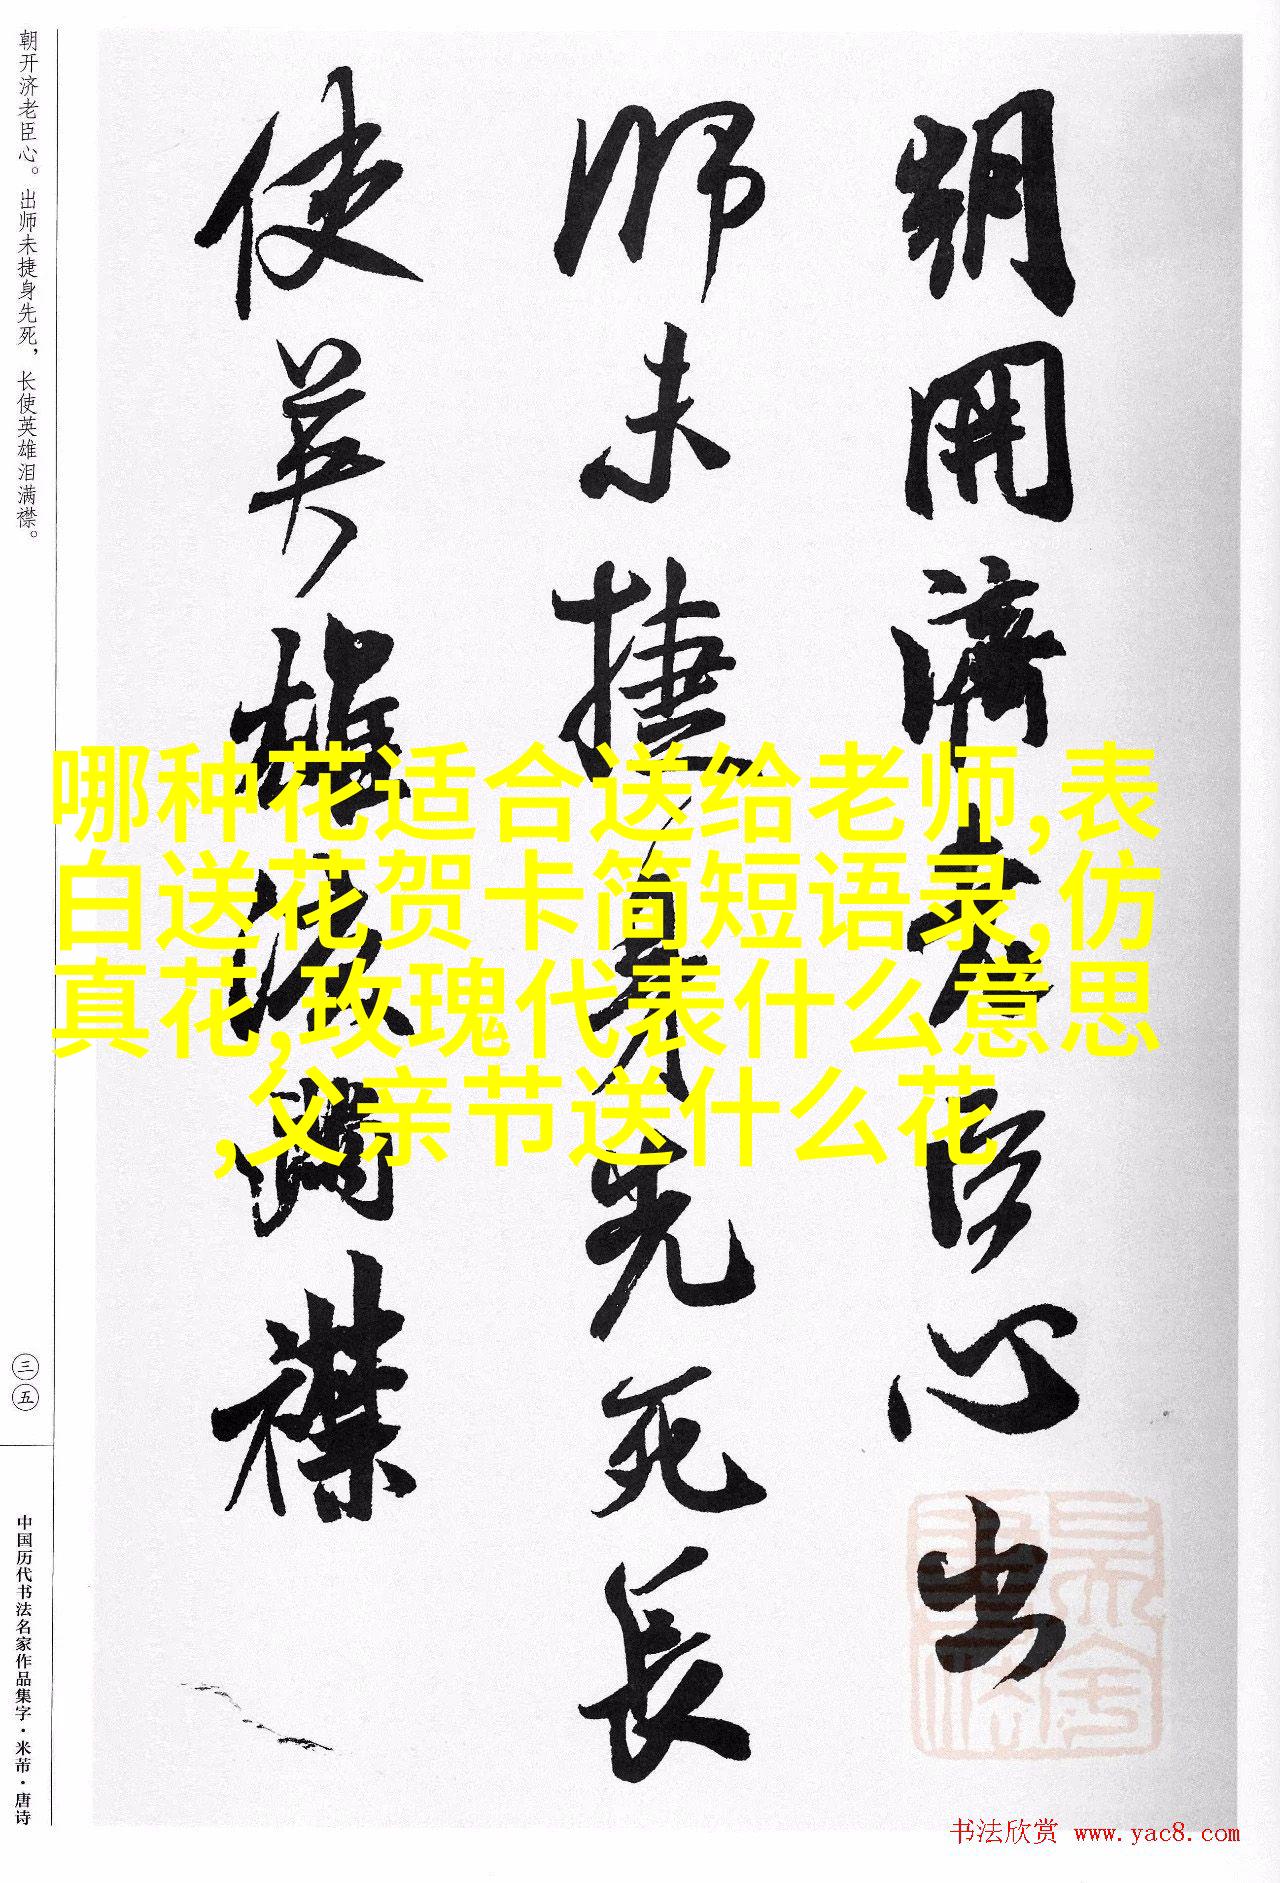 朝开济老臣心。出师未捷身先死，长使英雄泪满襟。
朝開濟老臣心出
师未捷身先死長
使英雄淚滿襟
哪种花适合送给老师,表
白送花贺卡简短语录,仿
真花,玫瑰代表什么意思
,父亲节送什么花
三五
中国历代书法名家作品集字·米芾·唐诗
书法欣赏 www.yac8.com